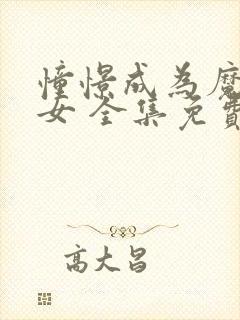 憧憬成為魔
女 全集免費
高大昌